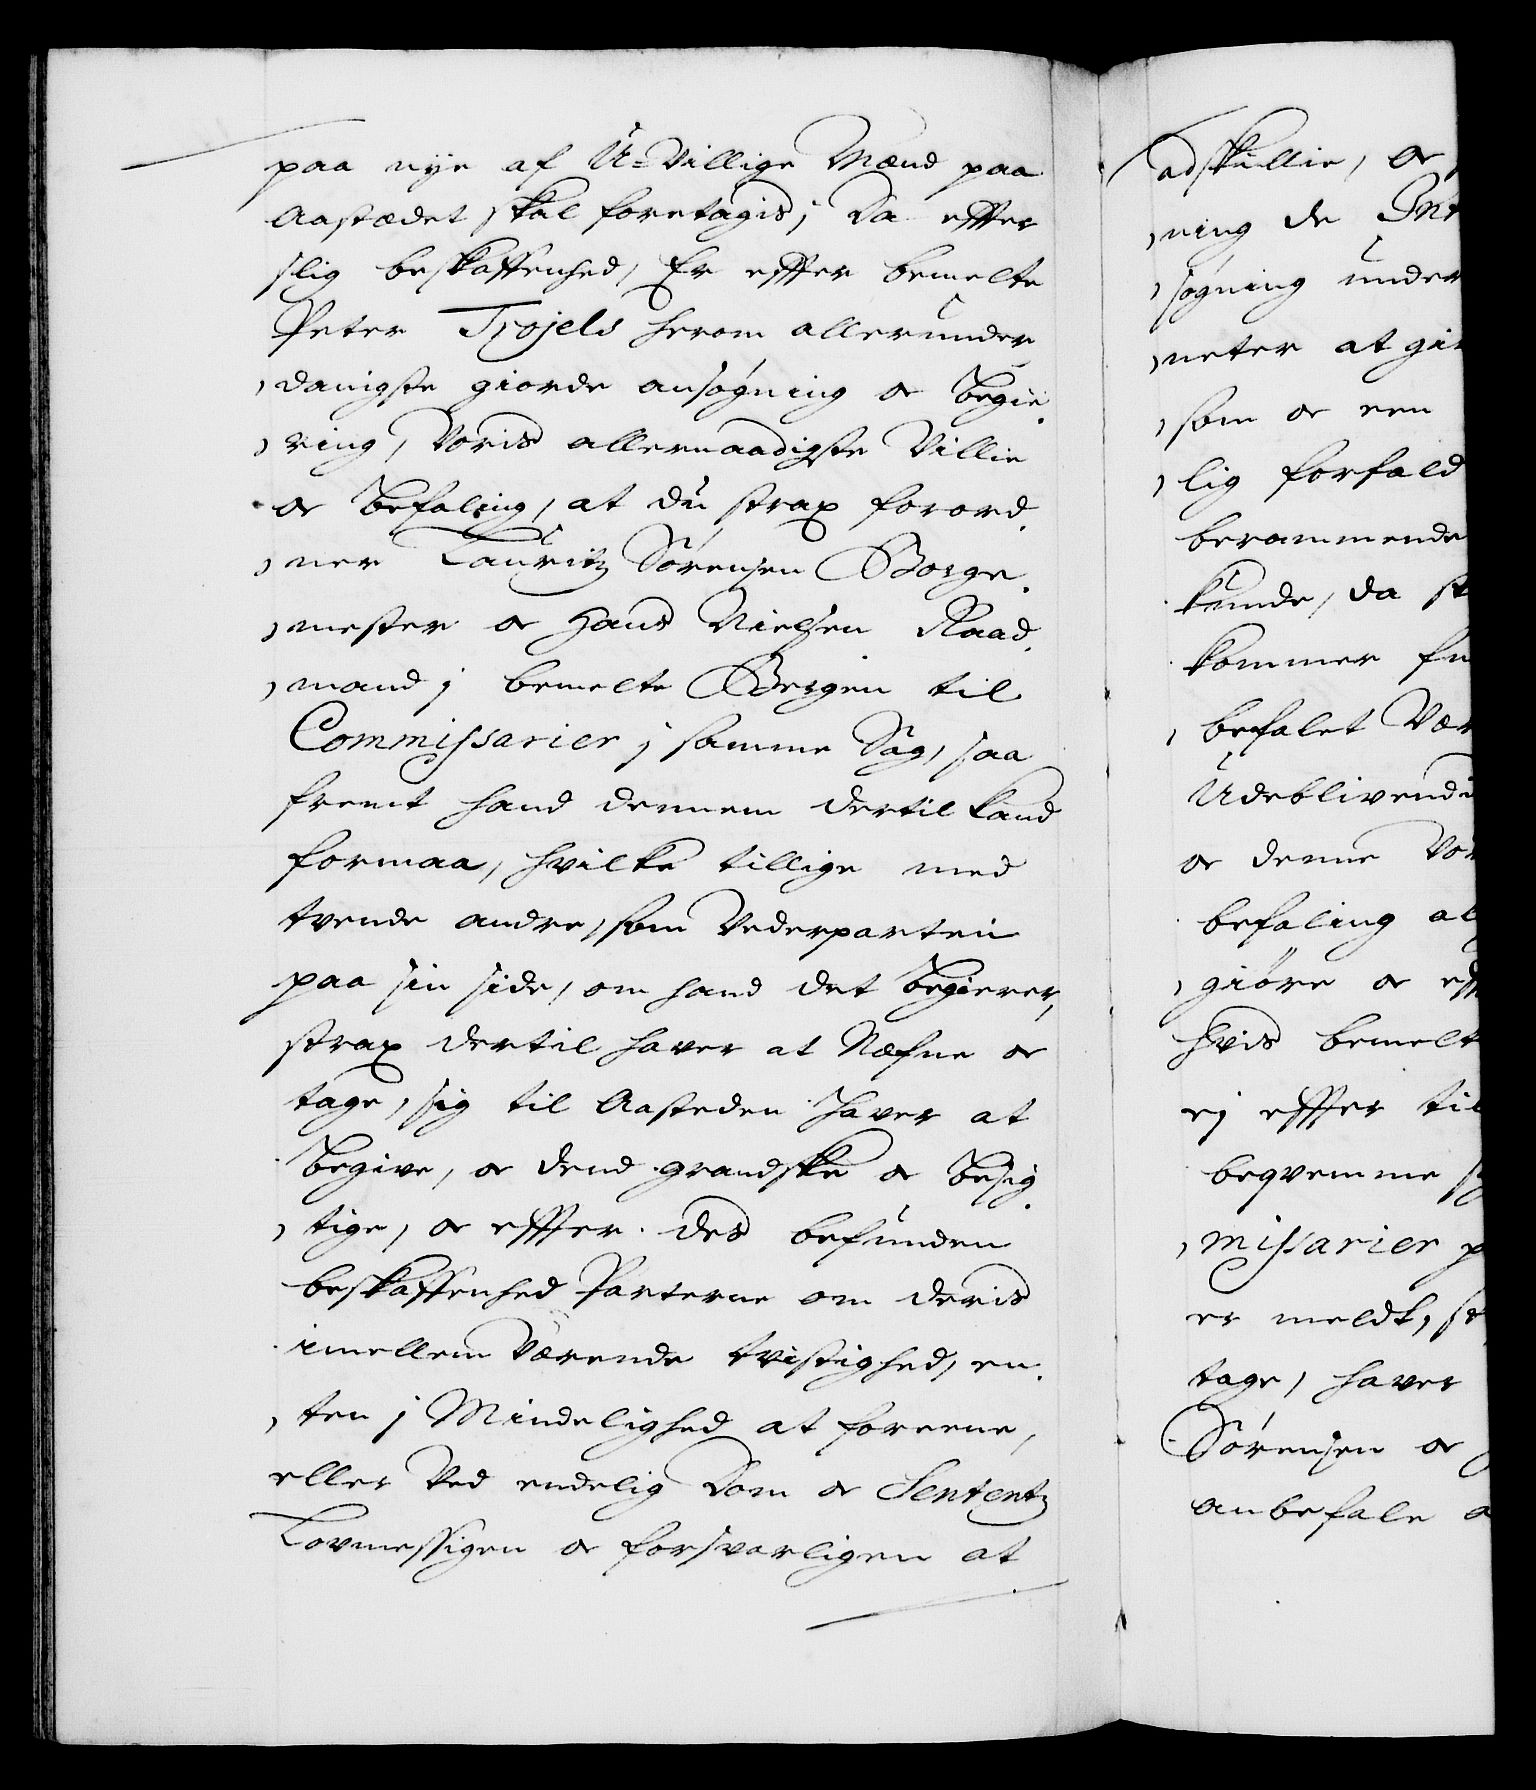 paa nye af U-Villige Mænd paa
Aastædet skal foretagis; Da effter
slig beskaffenhed, Er effter bemelte
Peter Trojels herom allerunder
danigste giorde ansøgning oc Begie
ring, Voris allernaadigste Villie
oc Befaling, at du strax forord
ner Lauritz Sørensen Borge
mester oc Hans Nielsen Raad
mand j bemelte Bergen til
Commissarier j samme Sag, saa
fremt hand dennem dertil kand
formaa, hvilke tillige med
tvende andre, som Vederparten
paa sin side, om hand det Begierer,
strax dertil haver at Næfne oc
tage, sig til Aasteden haver at
Begive, oc dend grandske oc Besig
tige, oc effter des befunden
beskaffenhed Parterne om deris
imellem Værende tvistighed, en
ten j Mindelighed at foreene,
eller Ved endelig Dom oc Sententz
Lovmessigen oc forsvarligen at
adskillie, oc
ning de Int
søgning under
neter at gi
som oc een
lig forfald
berammende
kunde, da st
kommer
befalet Vær
Udeblivend
oc denne Vor
befaling al
giøre oc eff
hvis bemelt
ej effter til
beqvemme
missarier p
er meldt, s
tage, haver
Sørensen oc
anbefale a